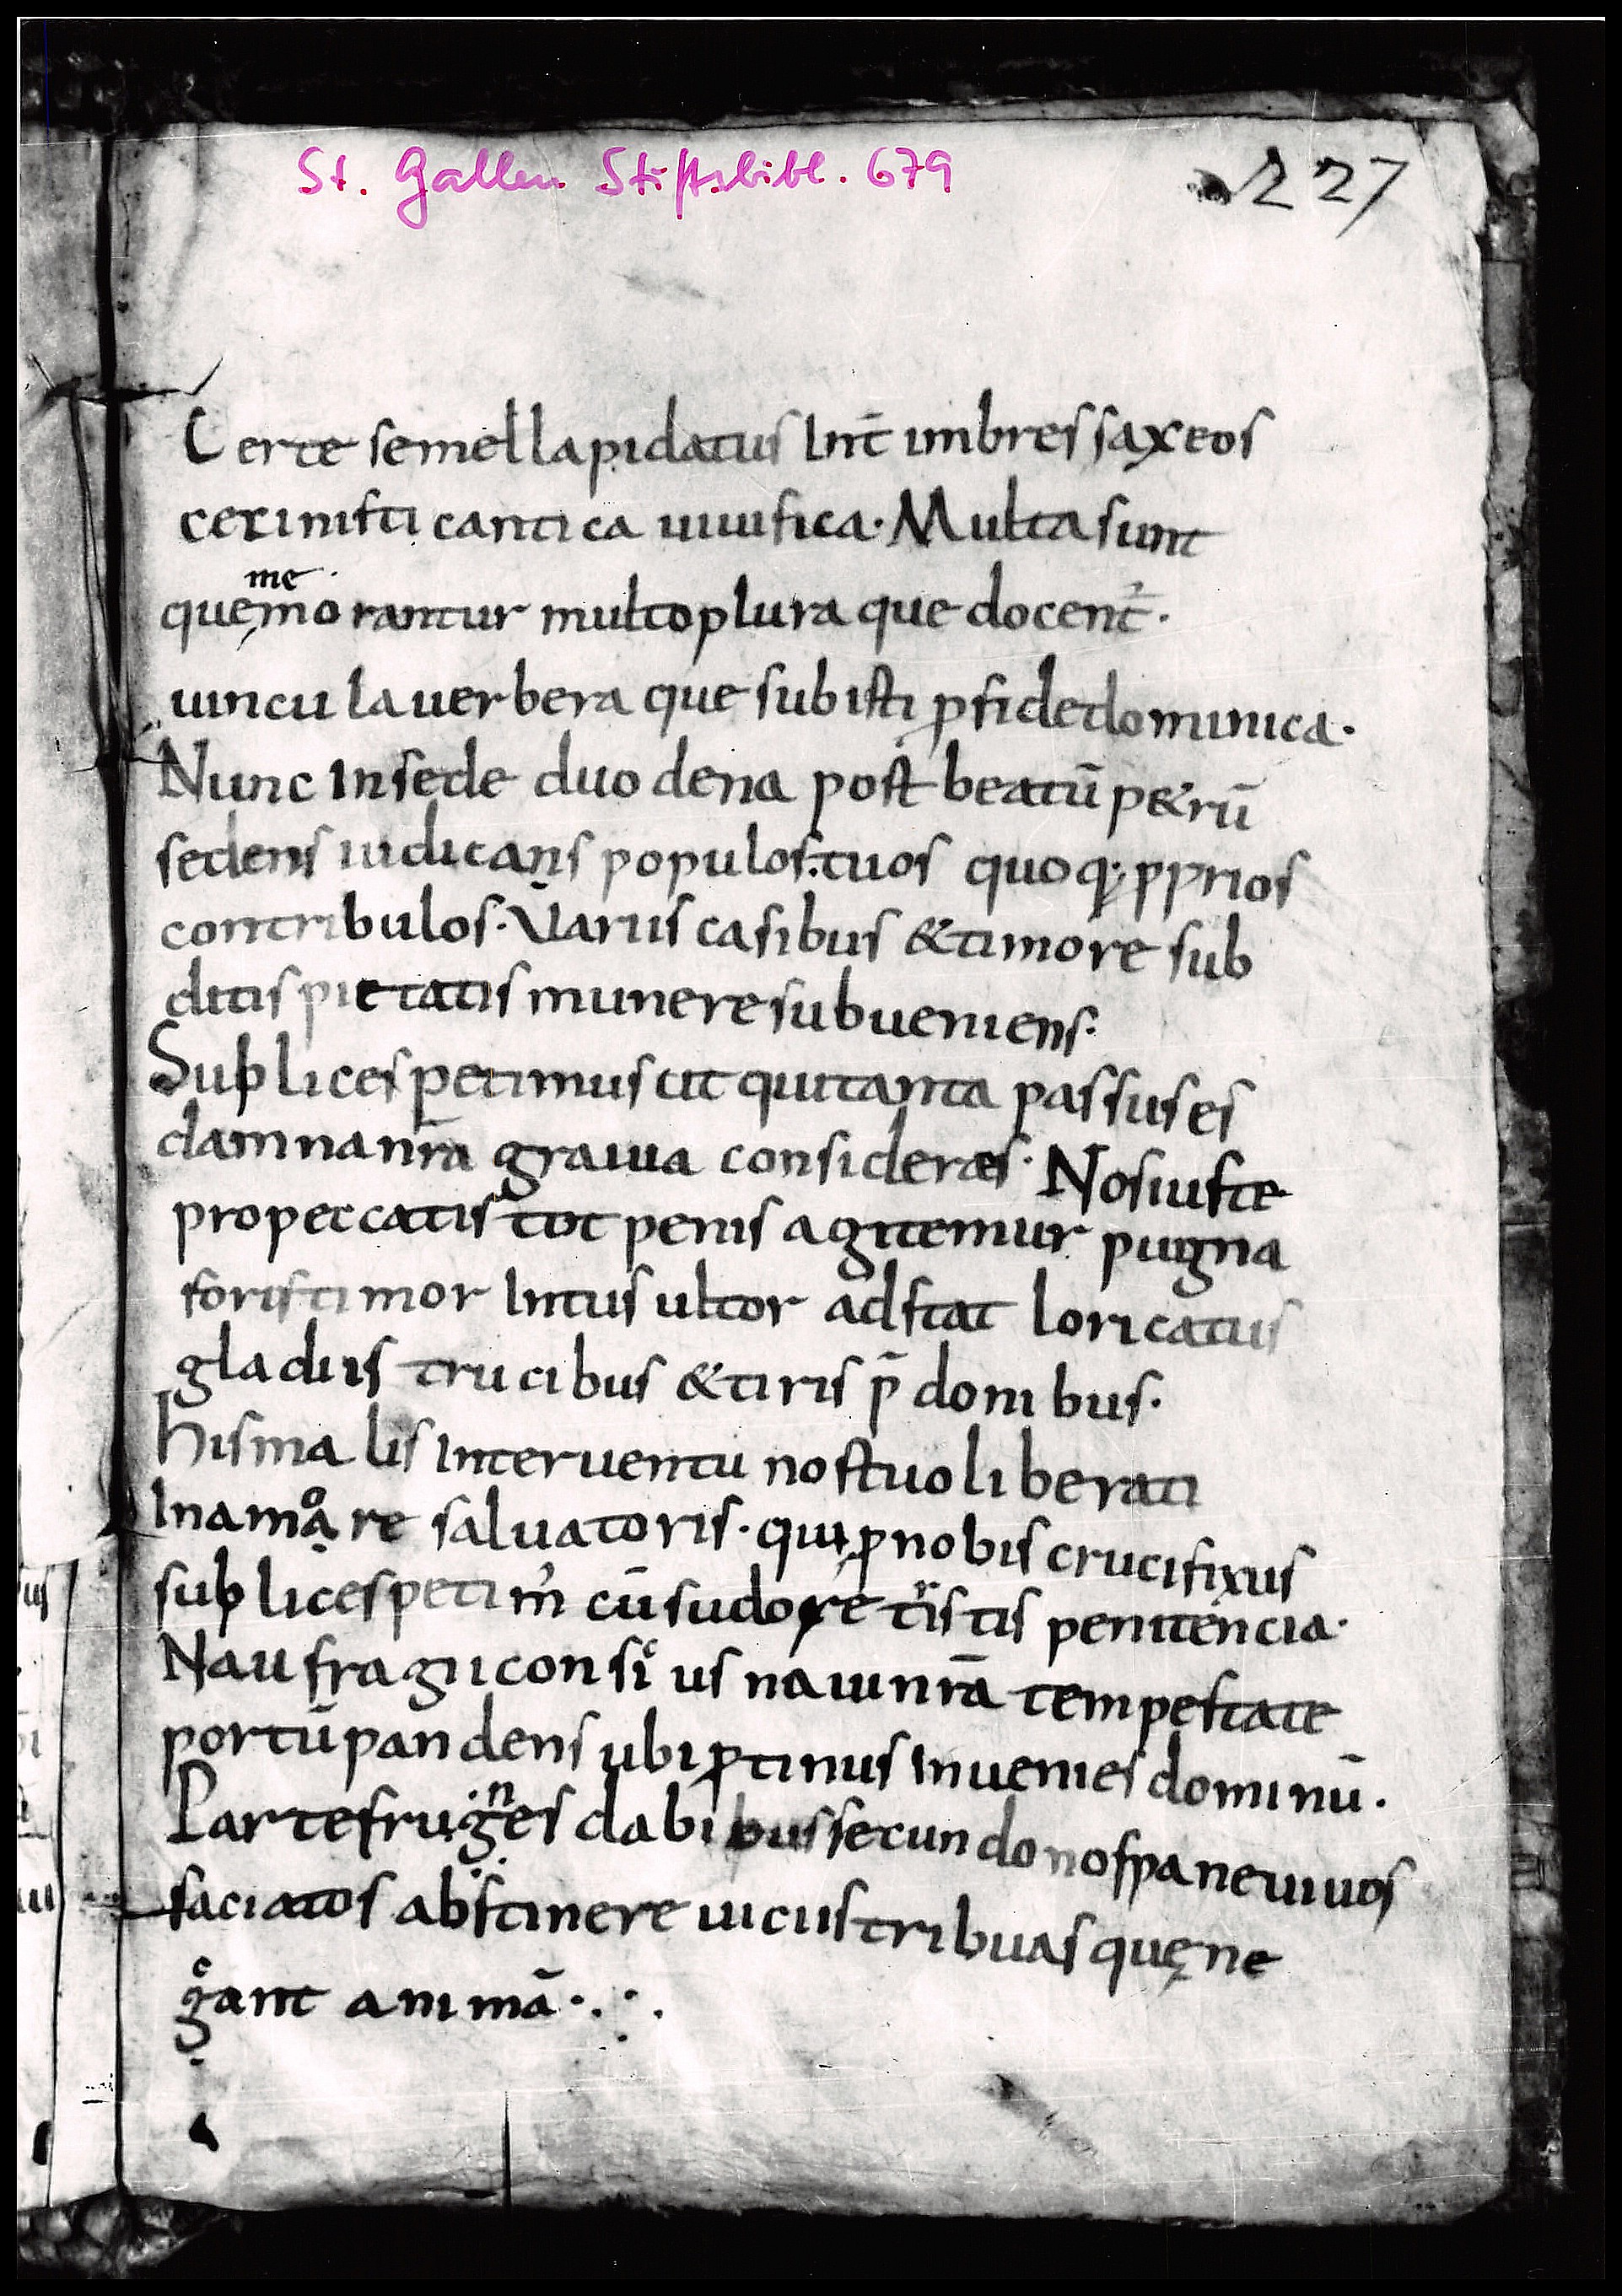 St. Gallen Stiftsbibl. 679
227
Certe semel lapidatus int̄ imbres saxeos
cecinisti cantica uiuifica· Multa sunt
que memorantur multo plura que docent᷑·
uincula uerbera que subisti ꝓ fide dominica·
Nunc in sede duodena post beatū petrū
sedens iudicans populos tuos quoq; ꝓprios
contribulos· Variis casibus & timore sub
ditis pietatis munere subueniens·
Suplices petimus ut qui tanta passus es
damna nr̄a grauia consideres· Nos iuste
pro peccatis tot penis agitemur pugna
foris timor intus ultor adstat loricatus
gladiis trucibus & tiris p̄donibus·
his malis interuentu nos tuo liberati
In amore saluatoris· qui ꝓ nobis crucifixus
suplices petim᷒ cū sudore tristis penitencia·
Naufragii consius naui nr̄a tempestate
portū pandens ubi ꝓtinus inuenies dominū·
Parte frugnes dabibus secundo nos pane uiuos
saciatos abstinere uiciis tribuas quę ne
cant animā·.·.